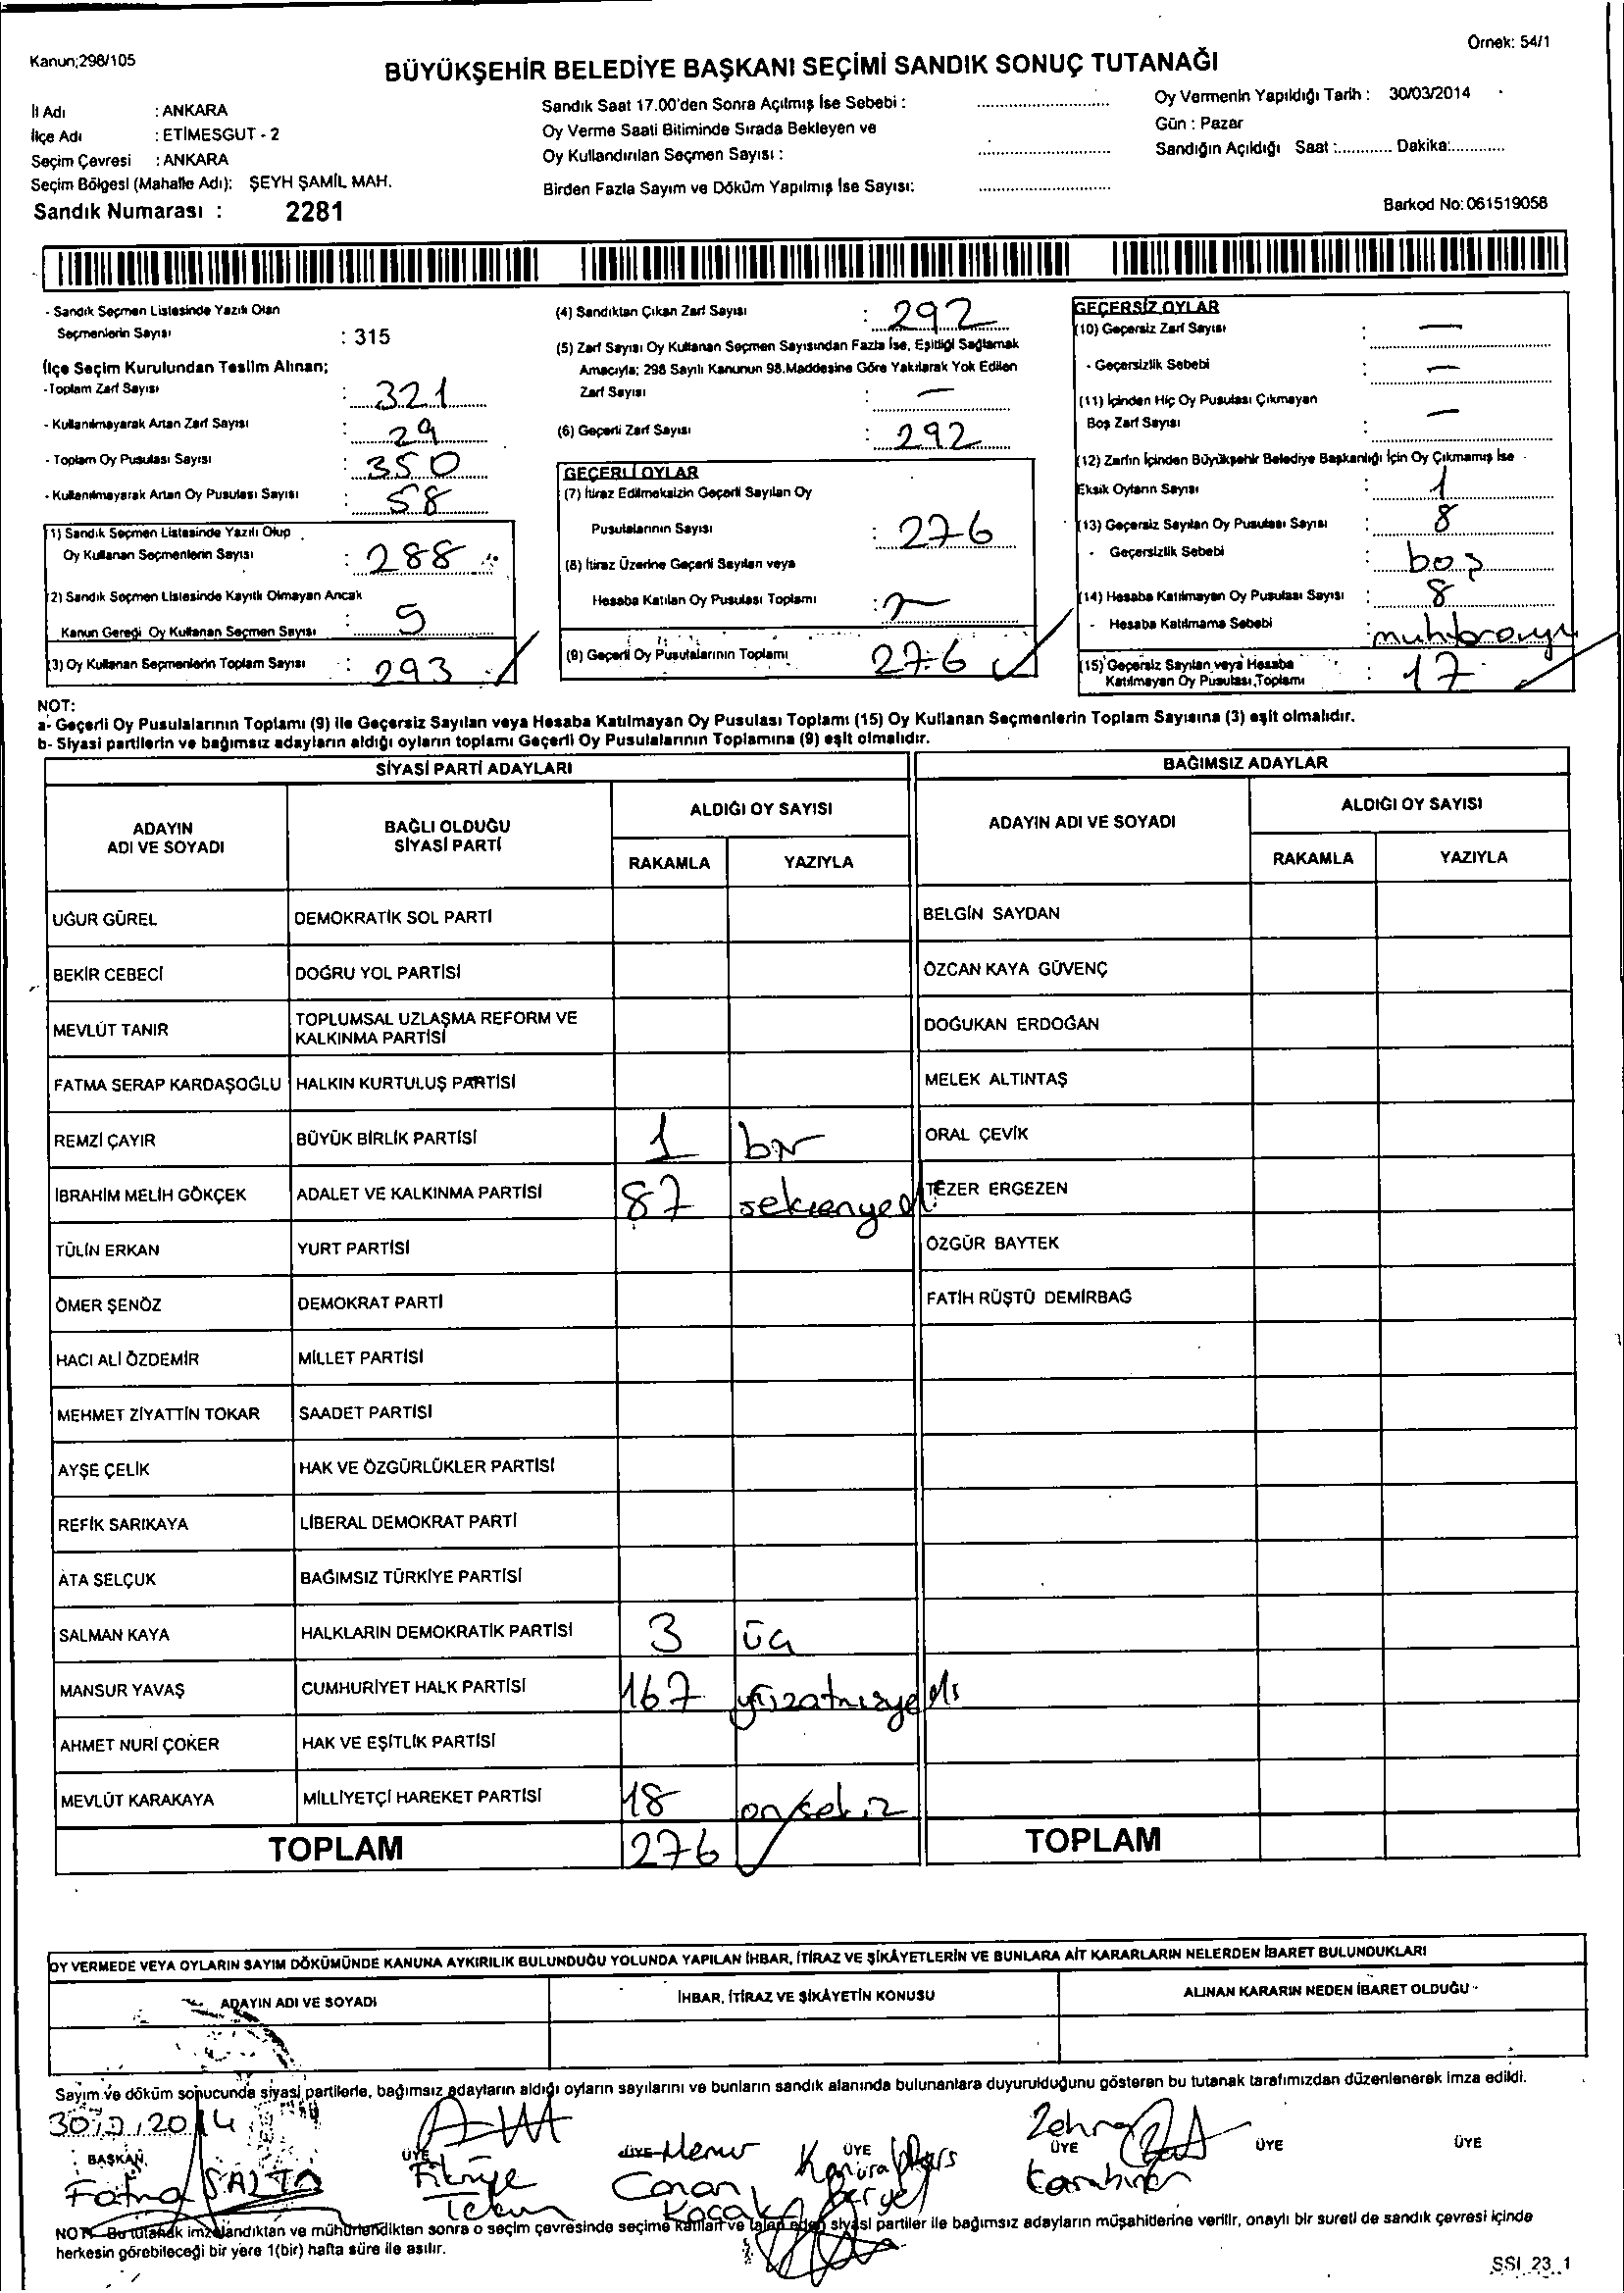 Kanun;298/105
Örnek: 54/1
BÜYÜKŞEHİR BELEDİYE BAŞKANI SEÇİMİ SANDIK SONUÇ TUTANAĞI
İl Adı : ANKARA
İlçe Adı : ETİMESGUT - 2
Seçim Çevresi : ANKARA
Seçim Bölgesi (Mahalle Adı): ŞEYH ŞAMİL MAH.
Sandık Numarası : 2281
Sandık Saat 17.00'den Sonra Açılmış İse Sebebi :
Oy Verme Saati Bitiminde Sırada Bekleyen ve
Oy Kullandırılan Seçmen Sayısı :
Birden Fazla Sayım ve Döküm Yapılmış İse Sayısı:
Oy Vermenin Yapıldığı Tarih : 30/03/2014
Gün : Pazar
Sandığın Açıldığı Saat :............ Dakika:............
Barkod No: 061519058
- Sandık Seçmen Listesinde Yazılı Olan
Seçmenlerin Sayısı : 315
İlçe Seçim Kurulundan Teslim Alınan;
-Toplam Zarf Sayısı : 321
- Kullanılmayarak Artan Zarf Sayısı : 29
- Toplam Oy Pusulası Sayısı : 350
- Kullanılmayarak Artan Oy Pusulası Sayısı : 58
(1) Sandık Seçmen Listesinde Yazılı Olup
Oy Kullanan Seçmenlerin Sayısı : 288
(2) Sandık Seçmen Listesinde Kayıtlı Olmayan Ancak
Kanun Gereği Oy Kullanan Seçmen Sayısı : 5
(3) Oy Kullanan Seçmenlerin Toplam Sayısı : 293
(4) Sandıktan Çıkan Zarf Sayısı : 292
(5) Zarf Sayısı Oy Kullanan Seçmen Sayısından Fazla İse, Eşitliği Sağlamak
Amacıyla; 298 Sayılı Kanunun 98.Maddesine Göre Yakılarak Yok Edilen
Zarf Sayısı : —
(6) Geçerli Zarf Sayısı : 292
GEÇERLİ OYLAR
(7) İtiraz Edilmeksizin Geçerli Sayılan Oy
Pusulalarının Sayısı : 276
(8) İtiraz Üzerine Geçerli Sayılan veya
Hesaba Katılan Oy Pusulası Toplamı :
(9) Geçerli Oy Pusulalarının Toplamı 276
GEÇERSİZ OYLAR
(10) Geçersiz Zarf Sayısı : —
- Geçersizlik Sebebi : —
(11) İçinden Hiç Oy Pusulası Çıkmayan
Boş Zarf Sayısı : —
(12) Zarfın İçinden Büyükşehir Belediye Başkanlığı İçin Oy Çıkmamış İse
Eksik Oyların Sayısı : 1
(13) Geçersiz Sayılan Oy Pusulası Sayısı : 8
- Geçersizlik Sebebi : boş
(14) Hesaba Katılmayan Oy Pusulası Sayısı : 8
- Hesaba Katılmama Sebebi :
(15) Geçersiz Sayılan veya Hesaba
Katılmayan Oy Pusulası Toplamı : 17
NOT:
a- Geçerli Oy Pusulalarının Toplamı (9) ile Geçersiz Sayılan veya Hesaba Katılmayan Oy Pusulası Toplamı (15) Oy Kullanan Seçmenlerin Toplam Sayısına (3) eşit olmalıdır.
b- Siyasi partilerin ve bağımsız adayların aldığı oyların toplamı Geçerli Oy Pusulalarının Toplamına (9) eşit olmalıdır.
SİYASİ PARTİ ADAYLARI
ADAYIN ADI VE SOYADI
BAĞLI OLDUĞU SİYASİ PARTİ
ALDIĞI OY SAYISI
RAKAMLA YAZIYLA
UĞUR GÜREL DEMOKRATİK SOL PARTİ
BEKİR CEBECİ DOĞRU YOL PARTİSİ
MEVLÜT TANIR TOPLUMSAL UZLAŞMA REFORM VE
KALKINMA PARTİSİ
FATMA SERAP KARDAŞOĞLU HALKIN KURTULUŞ PARTİSİ
REMZİ ÇAYIR BÜYÜK BİRLİK PARTİSİ 1 bir
İBRAHİM MELİH GÖKÇEK ADALET VE KALKINMA PARTİSİ 87 seksenyedi
TÜLİN ERKAN YURT PARTİSİ
ÖMER ŞENÖZ DEMOKRAT PARTİ
HACI ALİ ÖZDEMİR MİLLET PARTİSİ
MEHMET ZİYATTİN TOKAR SAADET PARTİSİ
AYŞE ÇELİK HAK VE ÖZGÜRLÜKLER PARTİSİ
REFİK SARIKAYA LİBERAL DEMOKRAT PARTİ
ATA SELÇUK BAĞIMSIZ TÜRKİYE PARTİSİ
SALMAN KAYA HALKLARIN DEMOKRATİK PARTİSİ 3 üç
MANSUR YAVAŞ CUMHURİYET HALK PARTİSİ 167 yüzatmışyedi
AHMET NURİ ÇOKER HAK VE EŞİTLİK PARTİSİ
MEVLÜT KARAKAYA MİLLİYETÇİ HAREKET PARTİSİ 18 onsekiz
TOPLAM 276
BAĞIMSIZ ADAYLAR
ADAYIN ADI VE SOYADI
ALDIĞI OY SAYISI
RAKAMLA YAZIYLA
BELGİN SAYDAN
ÖZCAN KAYA GÜVENÇ
DOĞUKAN ERDOĞAN
MELEK ALTINTAŞ
ORAL ÇEVİK
TEZER ERGEZEN
ÖZGÜR BAYTEK
FATİH RÜŞTÜ DEMİRBAĞ
TOPLAM
OY VERMEDE VEYA OYLARIN SAYIM DÖKÜMÜNDE KANUNA AYKIRILIK BULUNDUĞU YOLUNDA YAPILAN İHBAR, İTİRAZ VE ŞİKÂYETLERİN VE BUNLARA AİT KARARLARIN NELERDEN İBARET BULUNDUKLARI
ADAYIN ADI VE SOYADI
İHBAR, İTİRAZ VE ŞİKÂYETİN KONUSU
ALINAN KARARIN NEDEN İBARET OLDUĞU
Sayım ve döküm sonucunda siyasi partilerle, bağımsız adayların aldığı oyların sayılarını ve bunların sandık alanında bulunanlara duyurulduğunu gösteren bu tutanak tarafımızdan düzenlenerek imza edildi.
BAŞKAN ÜYE ÜYE ÜYE ÜYE ÜYE ÜYE
Fatma SALTA
Fikriye
Canan
Zehra
NOT: Bu tutanak imzalandıktan ve mühürlendikten sonra o seçim çevresinde seçime katılan ve talep eden siyasi partiler ile bağımsız adayların müşahitlerine verilir, onaylı bir sureti de sandık çevresi içinde
herkesin görebileceği bir yere 1(bir) hafta süre ile asılır.
SSI_23_1